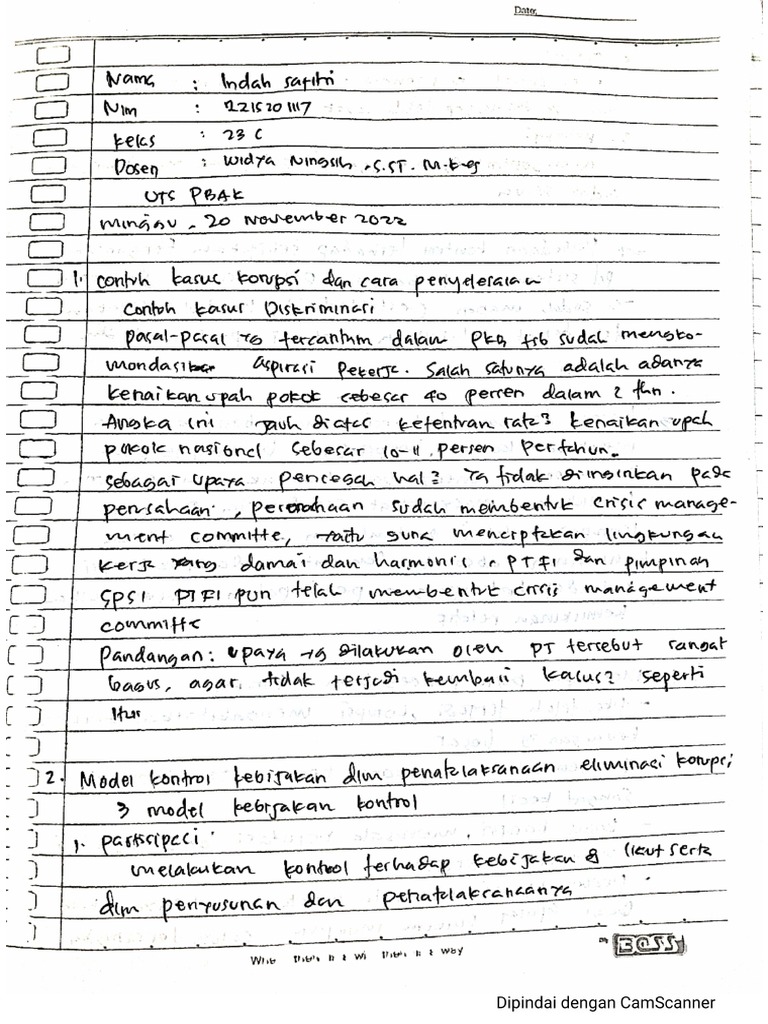 Date:
Nama : Indah Safitri
Nim : 2215201117
Kelas : 23 C
Dosen : Widya Ningsih, S.ST. M.Keg
UTS PBAK
minggu, 20 November 2022
1. contoh kasus korupsi dan cara penyelesaian
Contoh kasus Diskriminasi
pasal-pasal yg tercantum dalam PKB tsb sudah mengko-
mondasikan aspirasi pekerja. Salah satunya adalah adanya
kenaikan upah pokok sebesar 40 persen dalam 2 thn.
Angka ini jauh diatas ketentuan rata2 kenaikan upah
pokok nasional sebesar 10-11 persen pertahun.
sebagai upaya pencegah hal2 yg tidak diinginkan pada
perusahaan, perusahaan sudah membentuk crisis manage-
ment committe, yaitu guna menciptakan lingkungan
kerja yang damai dan harmonis. PTFI dan pimpinan
SPSI PTFI pun telah membentuk crisis management
committe
Pandangan : upaya yg dilakukan oleh PT tersebut sangat
bagus, agar tidak terjadi kembali kasus2 seperti
itu
2. Model kontrol kebijakan dlm penatalaksanaan eliminasi korupsi
3 model kebijakan kontrol
1. partisipasi
melakukan kontrol terhadap kebijakan & ikut serta
dlm penyusunan dan penatalaksanaanya
BOSS
Dipindai dengan CamScanner